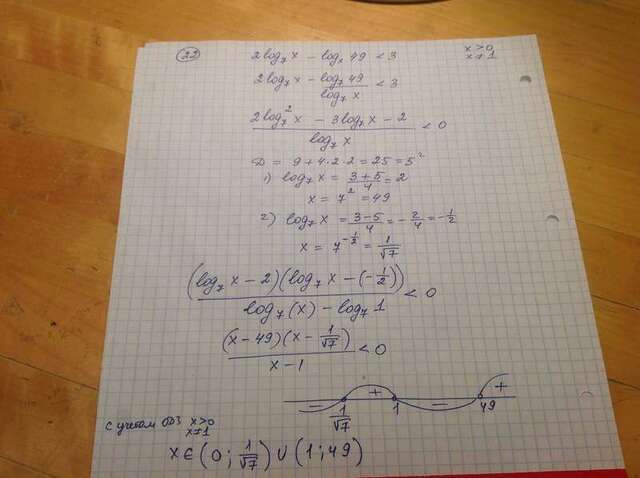 22 2log₇x - logₓ49 < 3 x>0
x≠1
2log₇x - log₇49/log₇x < 3
(2log₇²x - 3log₇x - 2)/log₇x < 0
D = 9+4·2·2=25=5²
1) log₇x = (3+5)/4 = 2
x = 7² = 49
2) log₇x = (3-5)/4 = -2/4 = -1/2
x = 7^(-1/2) = 1/√7
(log₇x-2)(log₇x-(-1/2))/(log₇(x) - log₇1) < 0
(x-49)(x-1/√7)/(x-1) < 0
- + - +
1/√7 1 49
с учетом ОДЗ x>0
x≠1
x∈(0; 1/√7)∪(1;49)